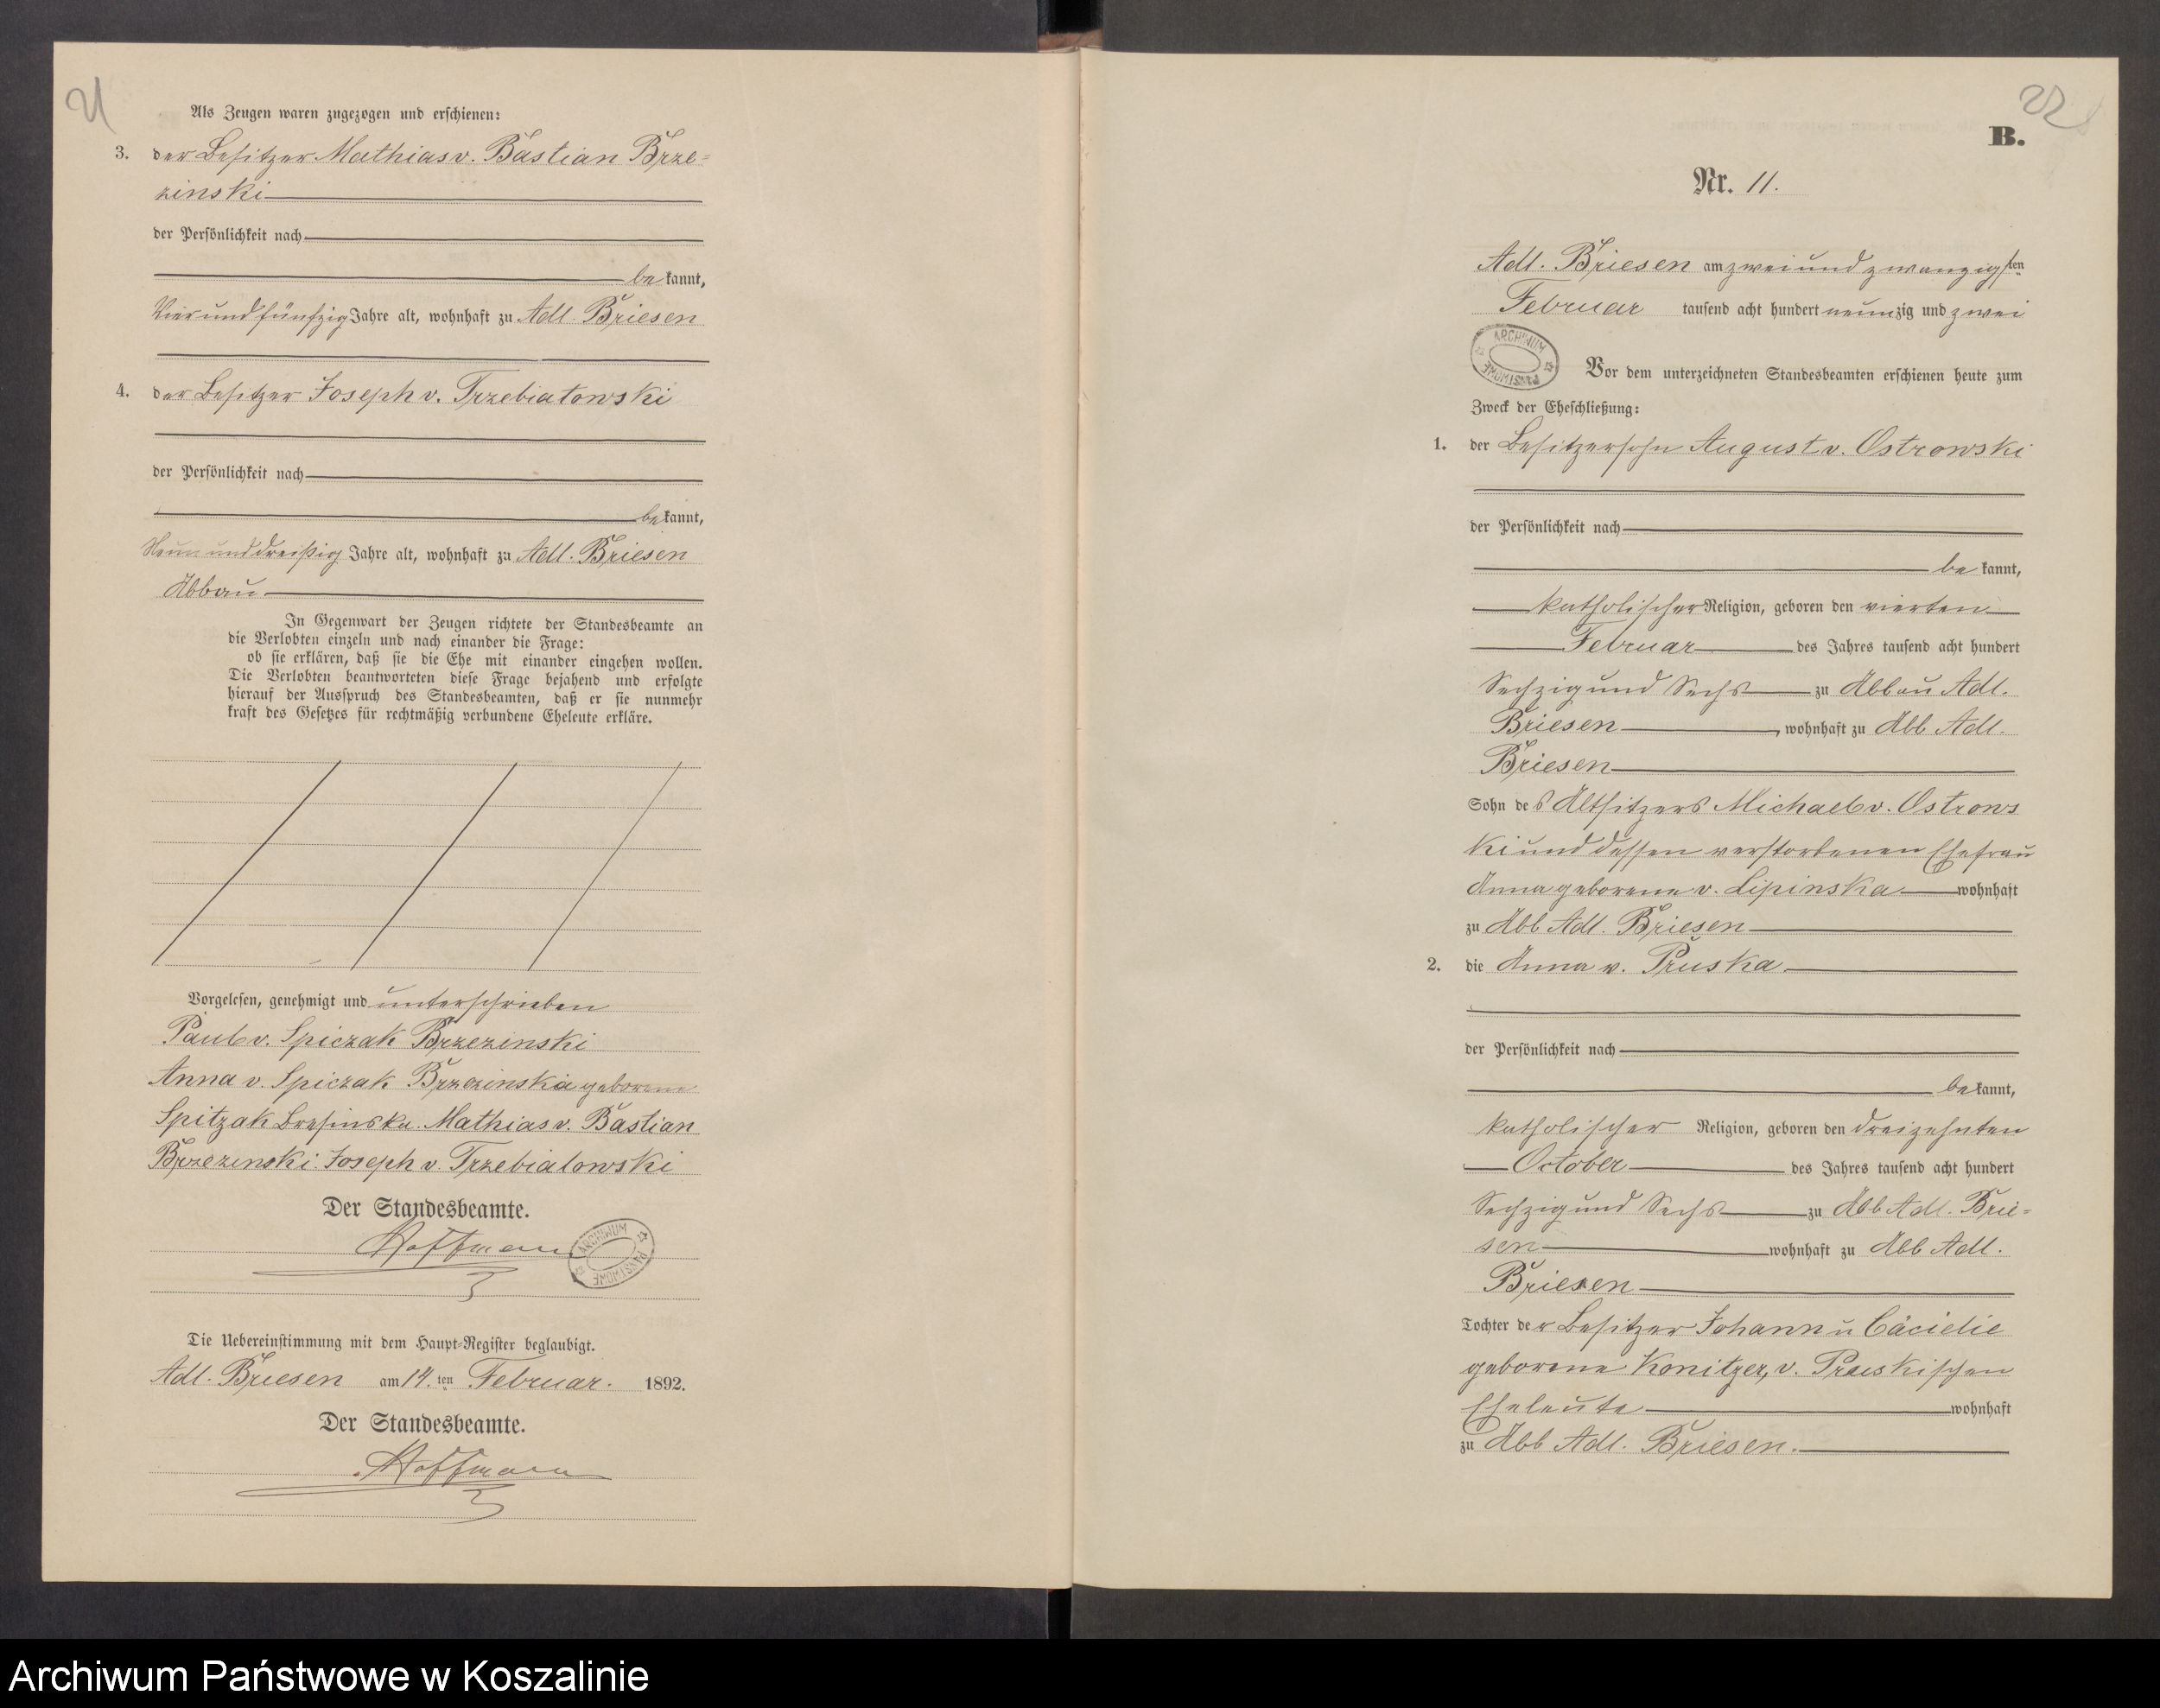 21
Als Zeugen waren zugezogen und erschienen:
3. der Besitzer Mathias v. Bastian Brze=
zinski
der Persönlichkeit nach
be kannt,
Vier und fünfzig Jahre alt, wohnhaft zu Adl. Briesen
4. der Besitzer Joseph v. Trzebiatowski
der Persönlichkeit nach
be kannt,
Neun und dreißig Jahre alt, wohnhaft zu Adl. Briesen
Abbau
In Gegenwart der Zeugen richtete der Standesbeamte an
die Verlobten einzeln und nach einander die Frage:
ob sie erklären, daß sie die Ehe mit einander eingehen wollen.
Die Verlobten beantworteten diese Frage bejahend und erfolgte
hierauf der Ausspruch des Standesbeamten, daß er sie nunmehr
kraft des Gesetzes für rechtmäßig verbundene Eheleute erkläre.
Vorgelesen, genehmigt und unterschrieben
Paul v. Spiczak Brzezinski
Anna v. Spiczak Brzezinska geborene
Spitzak Bresinska. Mathias v. Bastian
Brzezinski. Joseph v. Trzebiatowski
Der Standesbeamte.
Hoffmann
ARCHIWUM PAŃSTWOWE
Die Uebereinstimmung mit dem Haupt-Register beglaubigt.
Adl. Briesen am 14. ten Februar. 1892.
Der Standesbeamte.
Hoffmann
22
B.
Nr. 11.
Adl. Briesen am zwei und zwanzigsten
Februar tausend acht hundert neunzig und zwei
ARCHIWUM PAŃSTWOWE
Vor dem unterzeichneten Standesbeamten erschienen heute zum
Zweck der Eheschließung:
1. der Besitzersohn August v. Ostrowski
der Persönlichkeit nach
be kannt,
katholischer Religion, geboren den vierten
Februar des Jahres tausend acht hundert
Sechzig und Sechs zu Abbau Adl.
Briesen, wohnhaft zu Abb Adl.
Briesen
Sohn des Altsitzers Michael v. Ostrows
ki und dessen verstorbenen Ehefrau
Anna geborene v. Lipinska wohnhaft
zu Abb Adl. Briesen
2. die Anna v. Pruska
der Persönlichkeit nach
be kannt,
katholischer Religion, geboren den dreizehnten
October des Jahres tausend acht hundert
Sechzig und Sechs zu Abb Adl. Brie=
sen wohnhaft zu Abb Adl.
Briesen
Tochter der Besitzer Johann u Cäcielie
geborene Konitzer, v. Pruskischen
Eheleute wohnhaft
zu Abb Adl. Briesen.
Archiwum Państwowe w Koszalinie